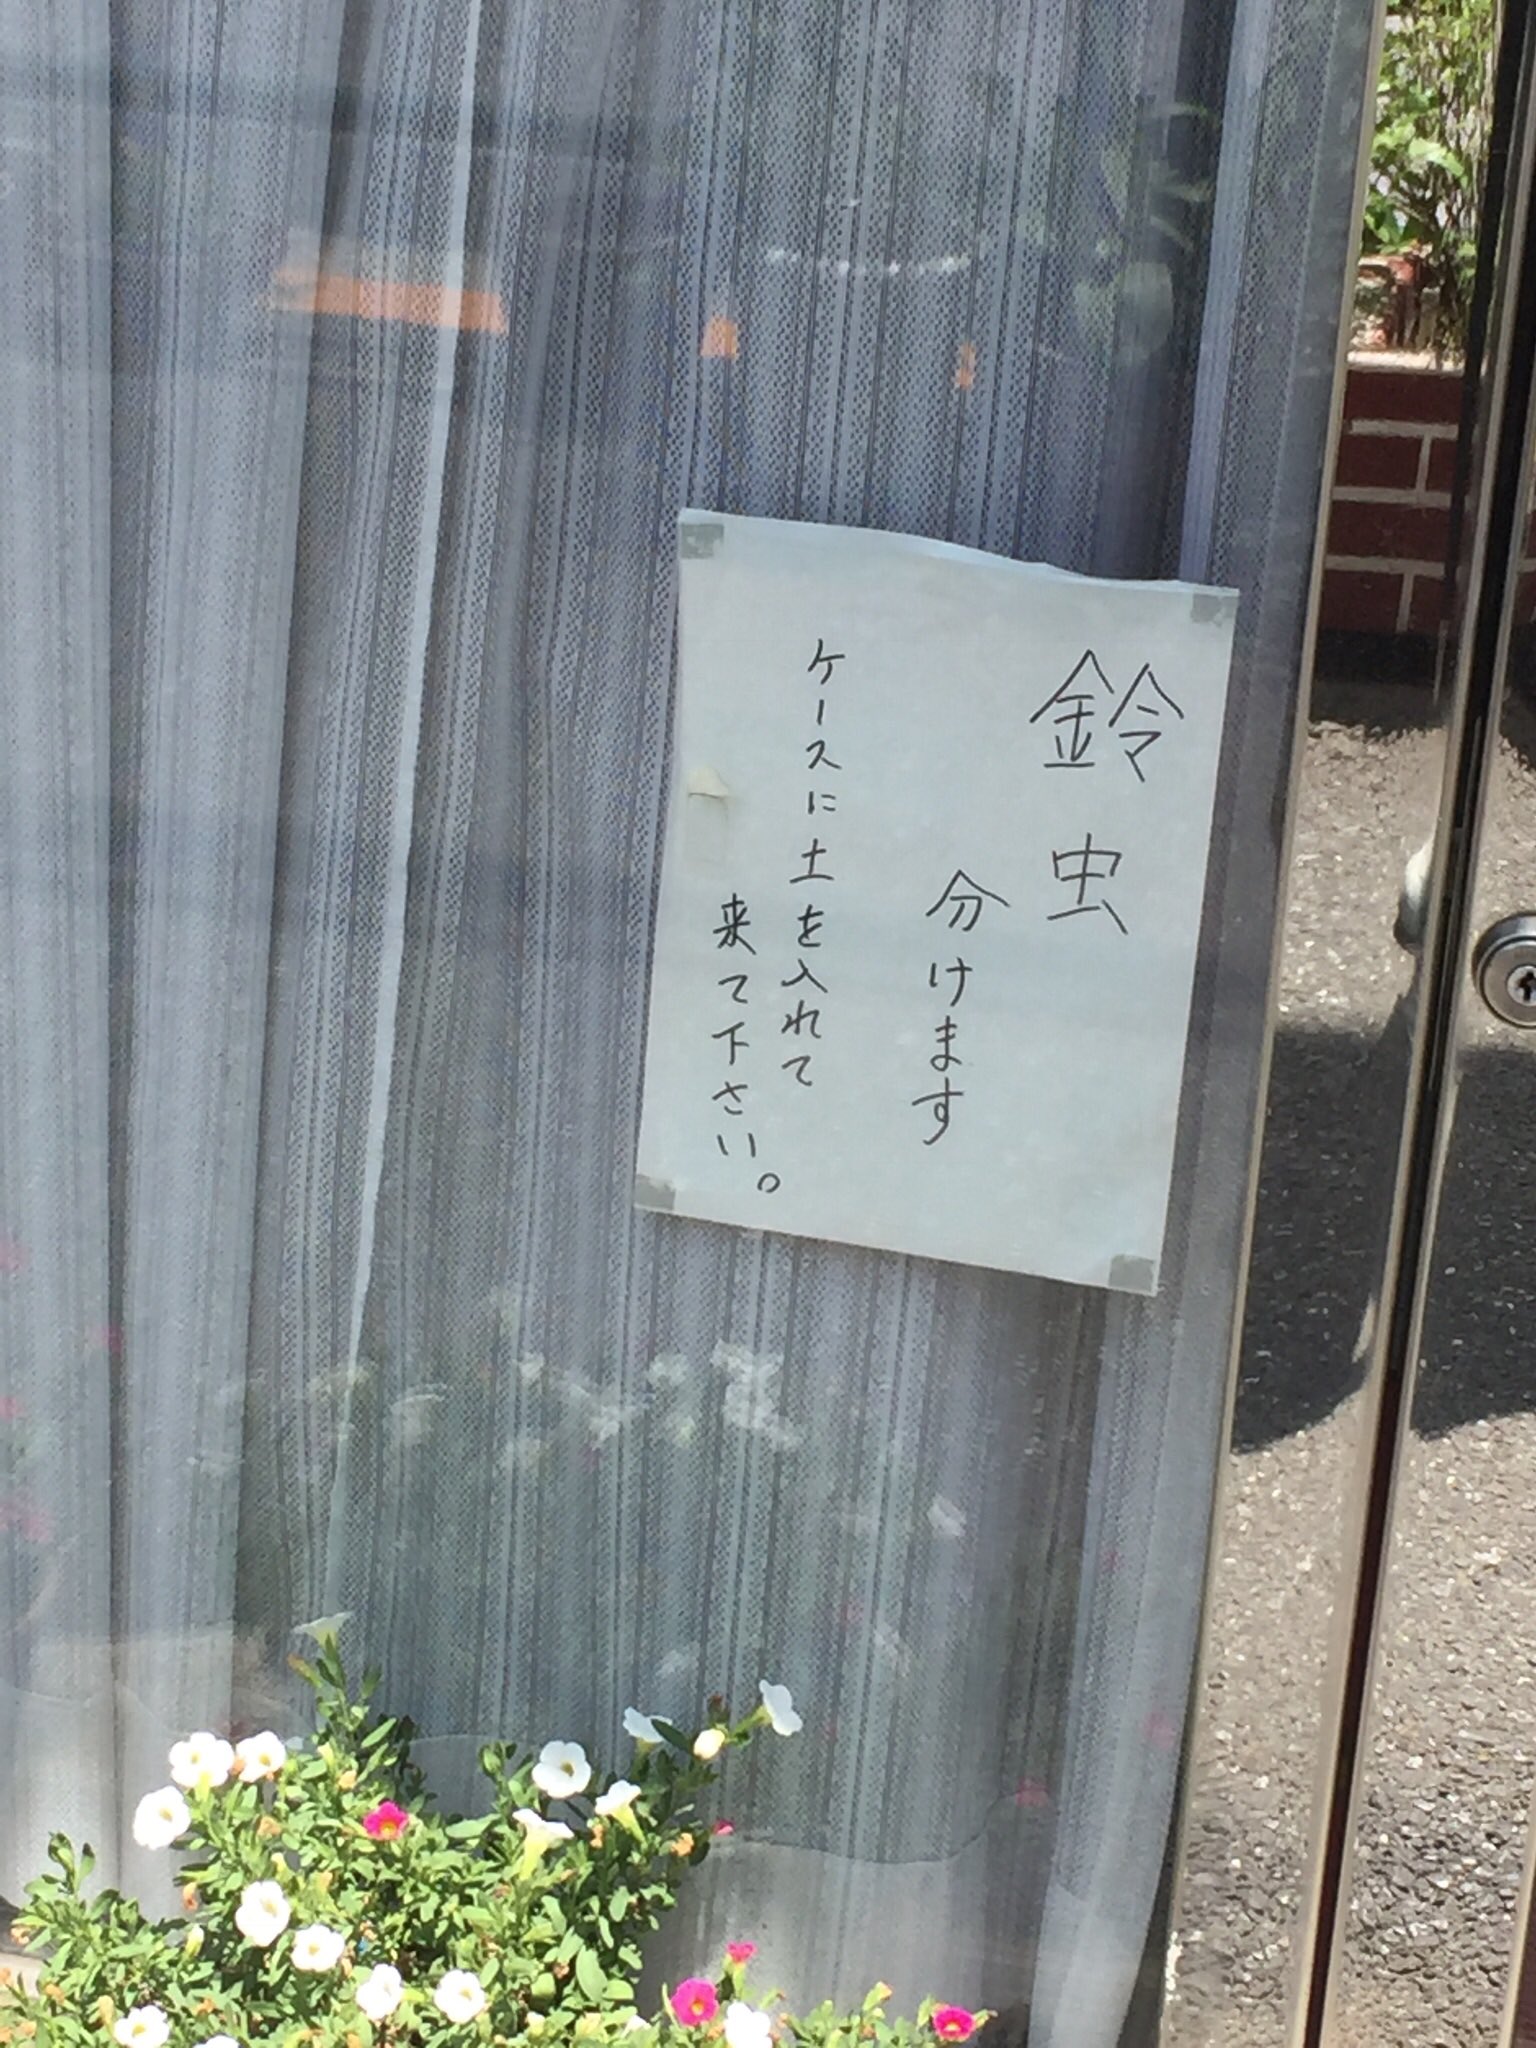 鈴虫
分けます
ケースに土を入れて
来て下さい。